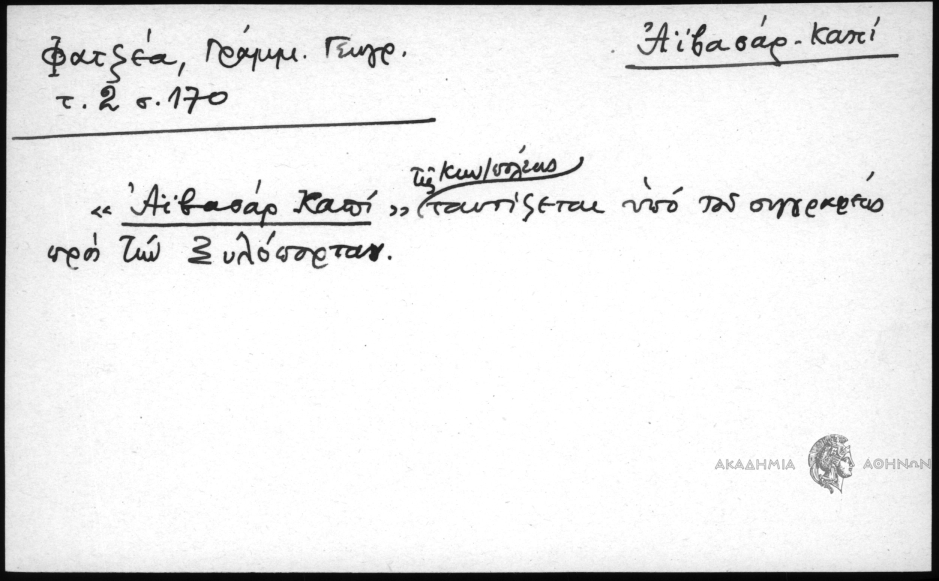 Φατζέα, Γράμμ. Γεωγρ.
τ. 2 σ. 170
Ἀϊβασάρ-Καπί
τῆς Κων/πόλεως
« Ἀϊβασάρ Καπί » ταυτίζεται ὑπό τοῦ συγγραφέως
πρός τήν Ξυλόπορταν.
ΑΚΑΔΗΜΙΑ ΑΘΗΝΩΝ